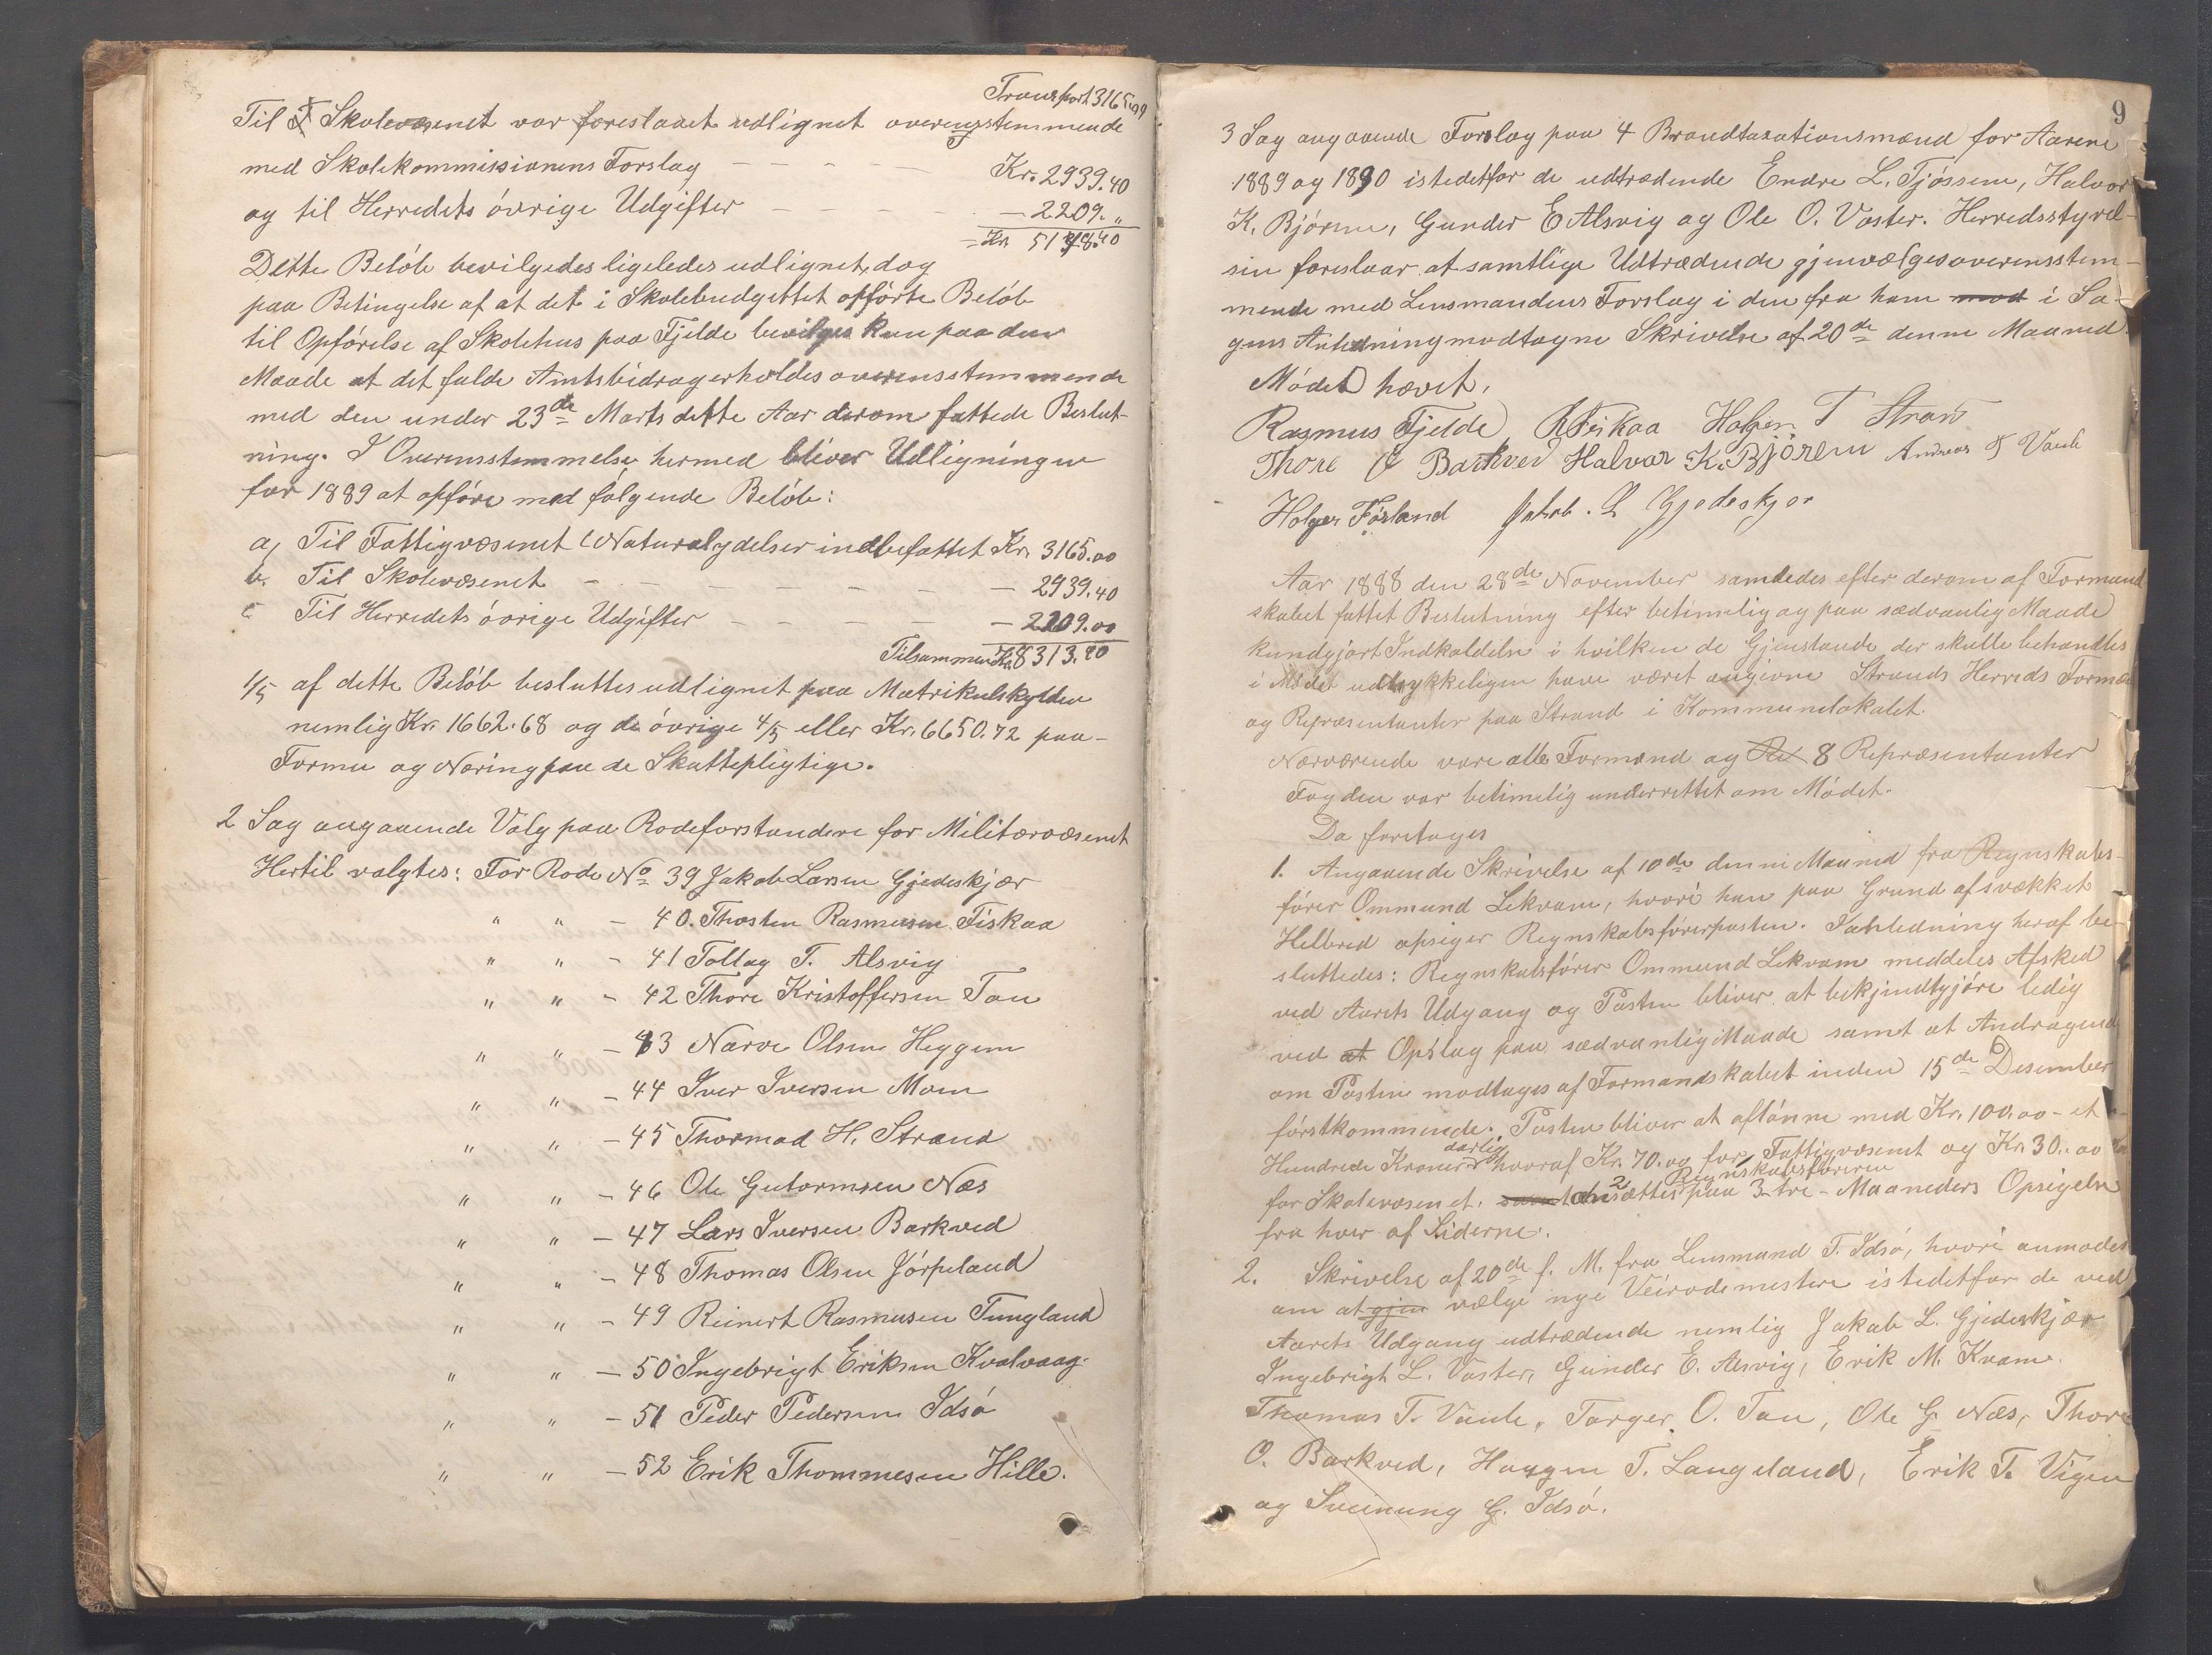 Transport 3165.00
Til Skolevæsenet var foreslaaet udlignet overensstemmende
med Skolekommissionens Forslag - - - - Kr. 2939.40
og til Herredets övrige Udgifter - - - - 2209. „
= Kr. 5148.40
Dette Belöb bevilgedes ligeledes udlignet, dog
paa Betingelse af at det i Skolebudgettet opförte Belöb
til Opförelse af Skolehus paa Fjelde bevilges kun paa den
Maade at det fulde Amtsbidrag erholdes overensstemmende
med den under 23de Marts dette Aar derom fattede Beslut-
ning. I Overensstemmelse hermed bliver Udligningen
for 1889 at opföre med fölgende Belöb:
a, Til Fattigvæsenet (Naturalydelser indbefattet Kr. 3165.00
b. Til Skolevæsenet - - - - - 2939.40
c Til Herredets övrige Udgifter - - - - 2209.00
Tilsammen Kr. 8313.40
1/5 af dette Belöb besluttes udlignet paa Matrikulskylden
nemlig Kr. 1662.68 og de övrige 4/5 eller Kr. 6650.72 paa-
Formue og Næring paa de Skattepligtige.
2 Sag angaaende Valg paa Rodeforstandere for Militærvæsenet
Hertil valgtes: For Rode No 39 Jakob Larsen Gjedeskjær
„ „ - 40. Thosten Rasmusen Fiskaa
„ „ - 41 Tollag T. Alsvig
„ „ - 42 Thore Kristoffersen Tau
„ „ - 43 Narve Olsen Heggem
„ „ - 44 Iver Iversen Moen
„ „ - 45 Thormod H. Strand
„ „ - 46 Ole Gutormsen Næs
„ „ - 47 Lars Iversen Barkved
„ „ - 48 Thomas Olsen Jörpeland
„ „ - 49 Reinert Rasmusen Tungland
„ „ - 50 Ingebrigt Eriksen Kvalvaag
„ „ - 51 Peder Pedersen Idsö
„ „ - 52 Erik Thommesen Hille.
9
3 Sag angaaende Forslag paa 4 Brandtaxationsmænd for Aarene
1889 og 1890 istedetfor de udtrædende Endre L. Tjössem, Halvor
K. Björem, Gunder E Alsvig og Ole O. Voster. Herredsstyrel-
sen foreslaar at samtlige Udtrædende gjenvælges overensstem-
mende med Lensmandens Forslag i den fra ham med i Sa-
gens Anledning modtagne Skrivelse af 20de denne Maaned.
Mödet hævet.
Rasmus Fjelde R Fiskaa Holger T Strand
Thore O Barkved Halvor K. Björem Andreas T Vaule
Holger Försland Jakob. L Gjedeskjær
Aar 1888 den 28de November samledes efter derom af Formand-
skabet fattet Beslutning efter betimelig og paa sædvanlig Maade
kundgjort Indkaldelse i hvilken de Gjenstande der skulle behandles
i Mödet udtrykkeligen have været angivne Strands Herreds Formæ
og Repræsentanter paa Strand i Kommunelokalet.
Nærværende vare alle Formænd og Re 8 Repræsentanter
Fogden var betimelig underrettet om Mödet.
Da foretoges
1. Angaaende Skrivelse af 10de denne Maaned fra Regnskabs-
förer Ommund Lekvam, hvori han paa Grund af svækket
Helbred opsiger Regnskabsförerposten. I anledning heraf be-
sluttedes: Regnskabsförer Ommund Lekvam meddeles Afsked
ved Aarets Udgang og Posten bliver at bekjendtgjöre ledig
ved at Opslag paa sædvanlig Maade samt at Andragende
om Posten modtages af Formandskabet inden 15de Desember
förstkommende. Posten bliver at aflönne med Kr. 100.00 - et
Hundrede Kroner aarlig hvoraf Kr. 70.00 for Fattigvæsenet og Kr. 30.00
for Skolevæsenet. samt ansættes Regnskabsföreren paa 3-tre-Maaneders Opsigelse
fra hver af Siderne.
2. Skrivelse af 20de f. M. fra Lensmand T. Idsö, hvori anmodes
om at gjen vælge nye Veirodemestere istedetfor de ved
Aarets Udgang udtrædende nemlig Jakob L. Gjedeskjær
Ingebrigt L. Voster, Gunder E. Alsvig, Erik M. Kvame.
Thomas T. Vaule, Torger O. Tau, Ole G. Næs, Thore
O. Barkved, Haagen T. Langeland, Erik T. Vigen
og Sveinung G. Idsö.